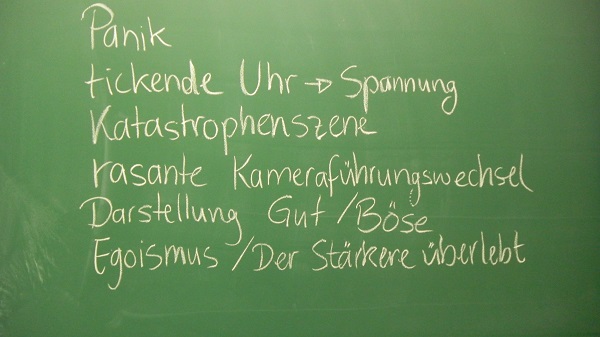 Panik
tickende Uhr → Spannung
Katastrophenszene
rasante Kameraführungswechsel
Darstellung Gut / Böse
Egoismus / Der Stärkere überlebt